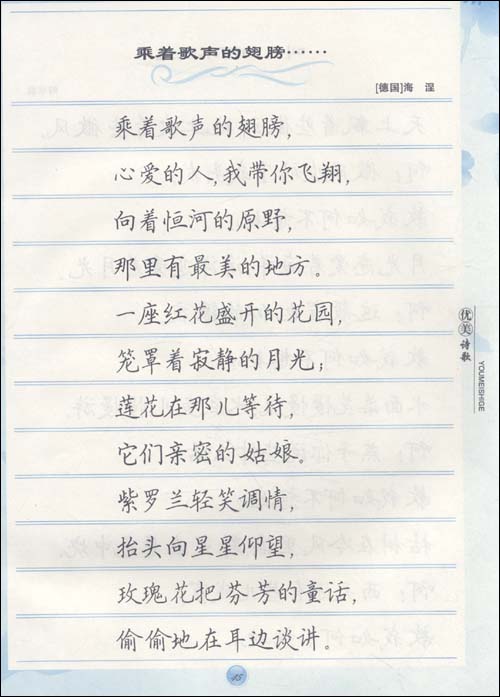 乘着歌声的翅膀……
[德国]海 涅
乘着歌声的翅膀,
心爱的人,我带你飞翔,
向着恒河的原野,
那里有最美的地方。
一座红花盛开的花园,
笼罩着寂静的月光;
莲花在那儿等待,
它们亲密的姑娘。
紫罗兰轻笑调情,
抬头向星星仰望,
玫瑰花把芬芳的童话,
偷偷地在耳边谈讲。
优美诗歌
YOUMEISHIGE
45